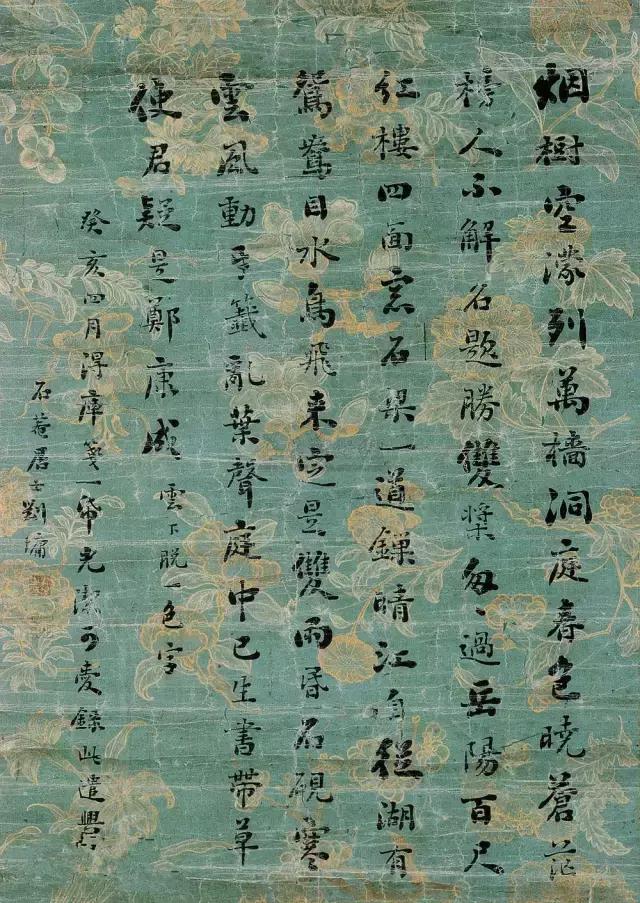 烟樹空濛列萬檣洞庭春色曉蒼茫
榜人不解名題勝雙槳匆〻過岳陽百尺
紅樓四面窓石梁一道鏁晴江自從湖有
鴛鴦目水鳥飛来定是雙雨昏石硯寒
雲風動牙籤亂葉聲庭中已生書帶草
使君疑是鄭康成 雲下脫一色字
癸亥四月得庫箋一帋光潔可愛錄此遣興
石菴居士劉墉